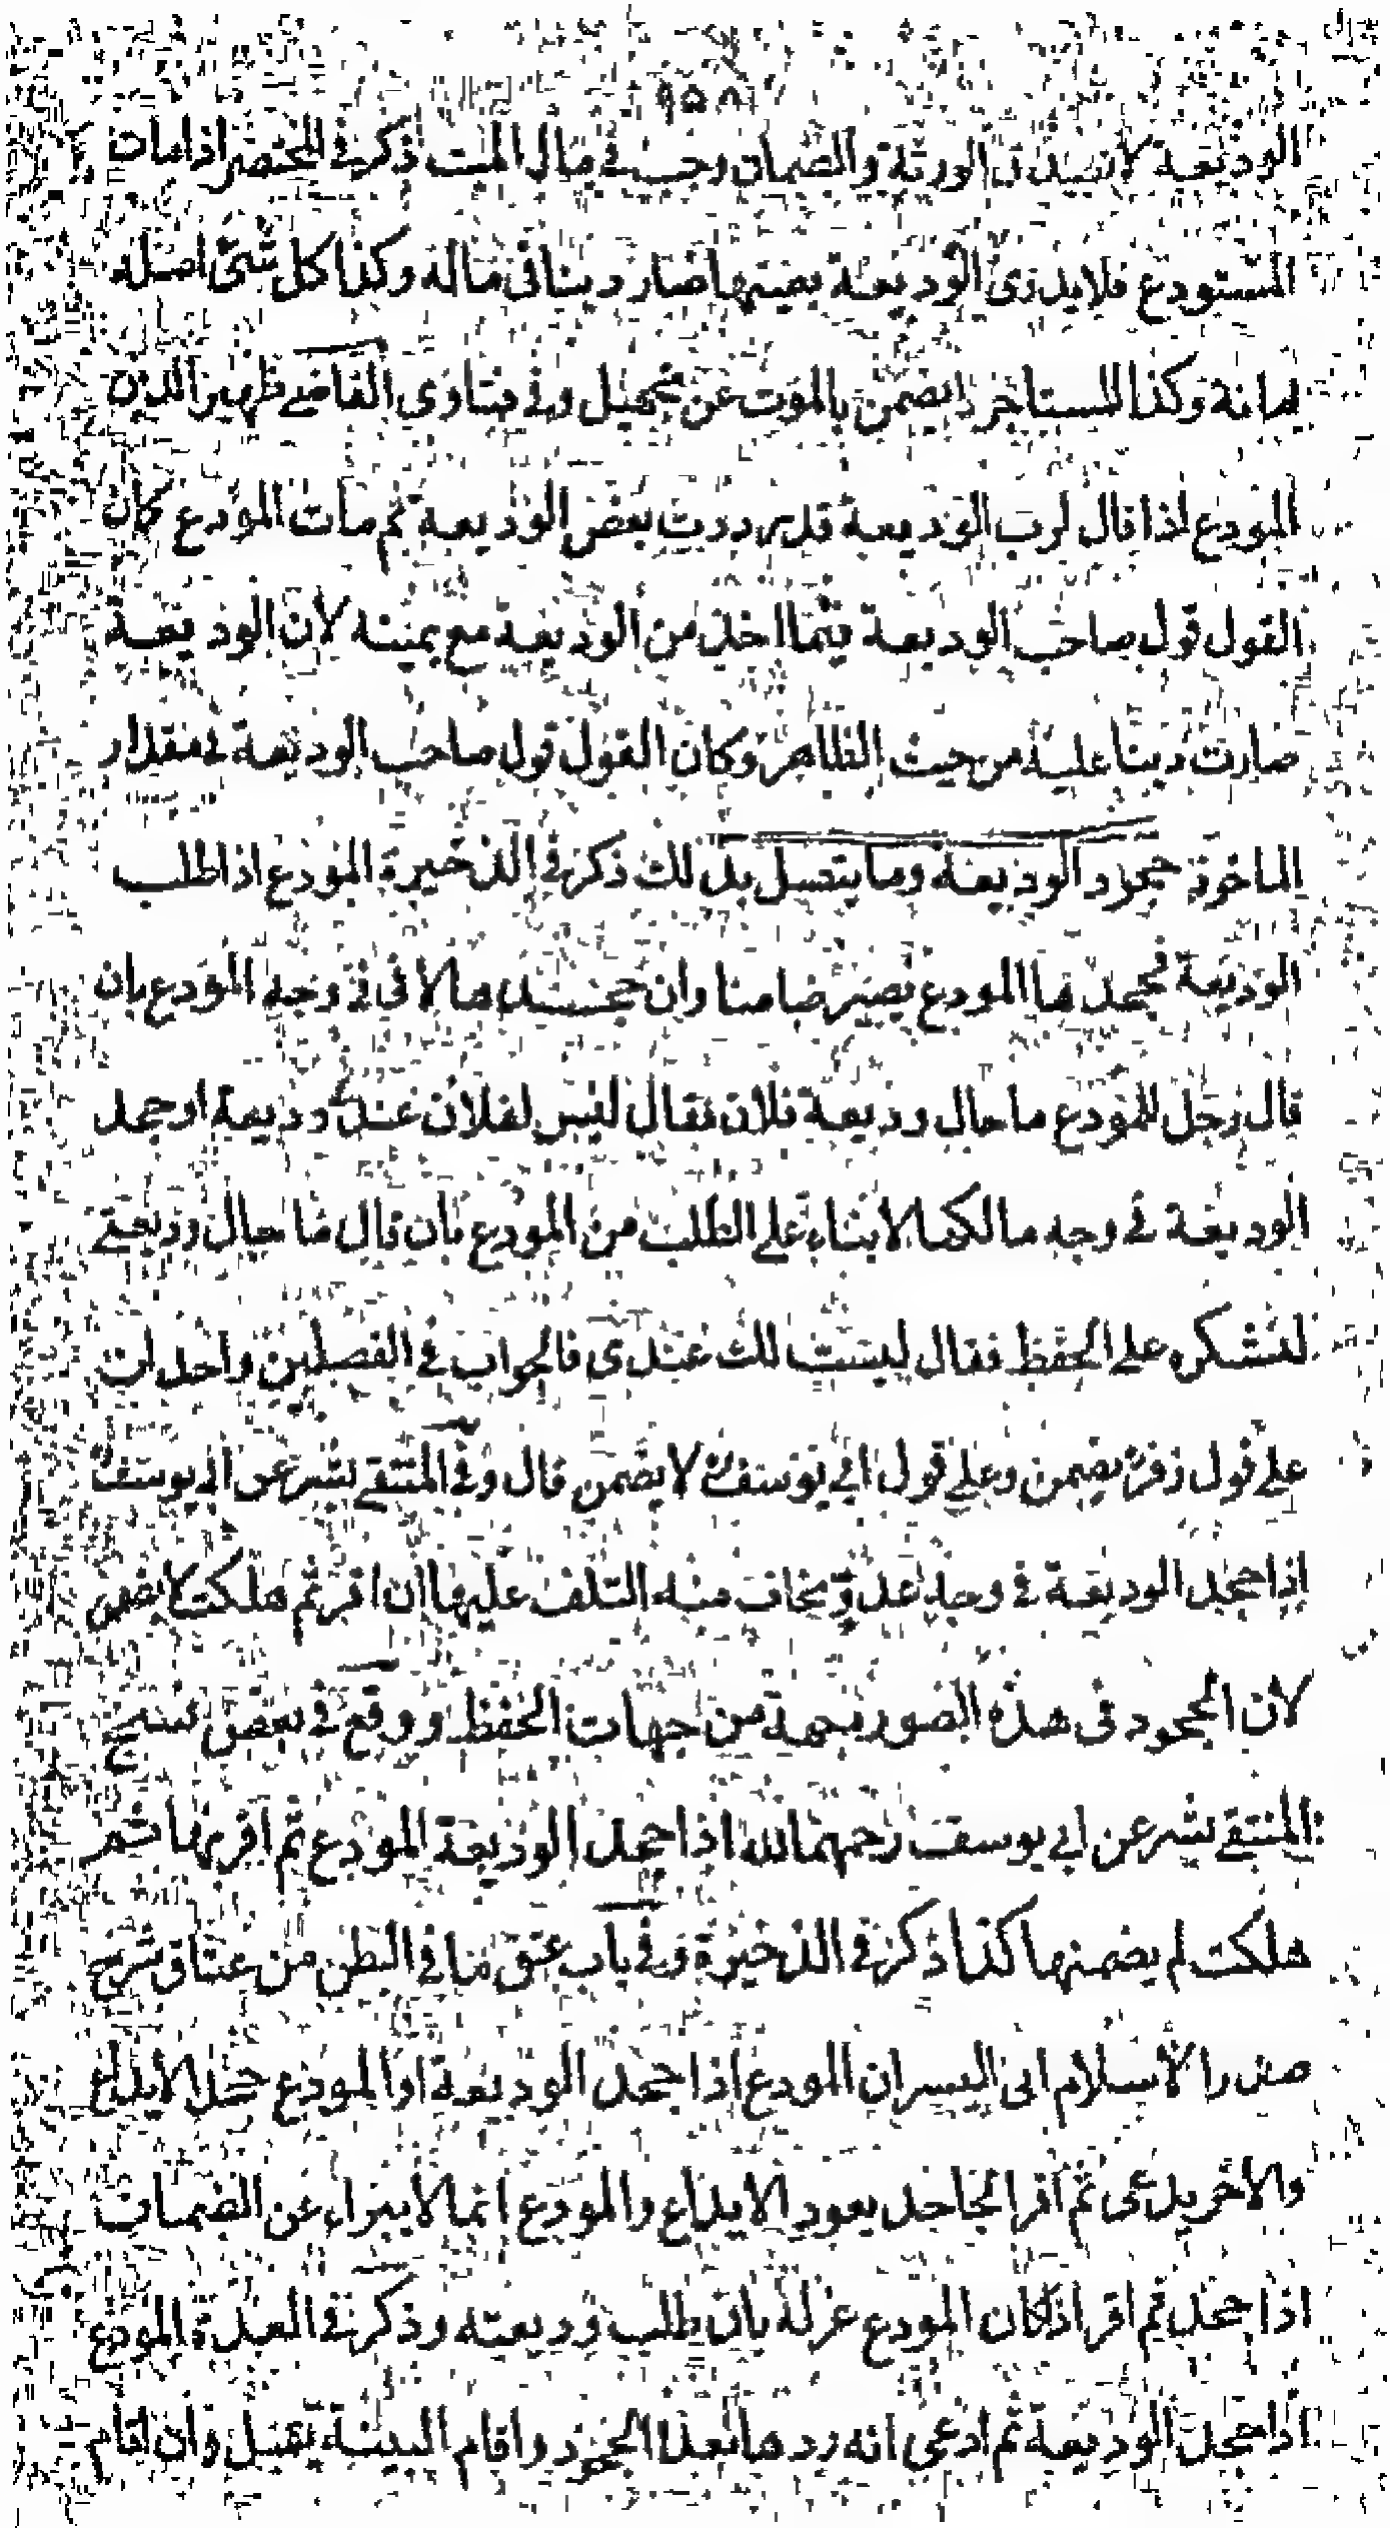 ٩٥٨
الوديعة لا تصدق الورثة والضمان وجب في مال الميت ذكر في المختصر اذا مات
المستودع فلا يدرى الوديعة بعينها صار دينا في ماله وكذا كل شئ اصله
امانة وكذا المستاجر يضمن بالموت عن تجهيل وفي فتاوى القاضي ظهير الدين
المودع اذا قال لرب الوديعة قد رددت بعض الوديعة ثم مات المودع كان
القول قول صاحب الوديعة فيما اخذ من الوديعة مع يمينه لان الوديعة
صارت دينا عليه من حيث الظاهر وكان القول قول صاحب الوديعة في مقدار
الماخوذ جحود الوديعة وما يتصل بذلك ذكر في الذخيرة المودع اذا طلب
الوديعة فجحدها المودع يصير ضامنا وان جحدها لا في وجه المودع بان
قال رجل للمودع ما حال وديعة فلان فقال ليس لفلان عندى وديعة او جحد
الوديعة في وجه مالكها لا بناء على الطلب من المودع بان قال ما حال وديعتي
لتشكره على الحفظ فقال ليست لك عندى فالجواب في الفصلين واحد ان
على قول زفر يضمن وعلى قول ابي يوسف لا يضمن قال وفي المنتقى بشر عن ابي يوسف
اذا جحد الوديعة في وجه عدو يخاف منه التلف عليها ان اقر ثم هلكت لا يضمن
لان الجحود فى هذه الصورة جهة من جهات الحفظ ووقع في بعض نسخ
المنتقى بشر عن ابي يوسف رحمهما الله اذا جحد الوديعة المودع ثم اقر بها ثم
هلكت لم يضمنها كذا ذكر في الذخيرة وفي باب عتق ما في البطن من عتاق شرح
صدر الاسلام ابى اليسر ان المودع اذا جحد الوديعة او المودع جحد الايداع
والاخر يدعى ثم اقر الجاحد يعود الايداع والمودع انما لا يبراء عن الضمان
اذا جحد ثم اقر اذا كان المودع عزله بان طلب وديعته وذكر في العدة المودع
اذا جحد الوديعة ثم ادعى انه ردها بعد الجحود واقام البينة تقبل وان اقام